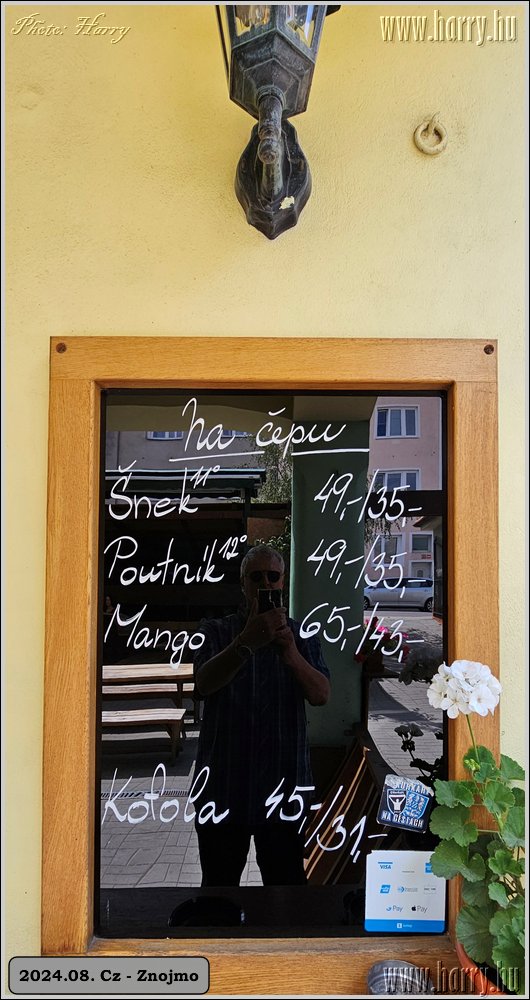 Photo: Harry
www.harry.hu
Na čepu
Šnek 11° 49,-/35,-
Poutník 12° 49,-/35,-
Mango 65,-/43,-
Kofola 45,-/31,-
NA CESTÁCH
VISA
Pay
Pay
2024.08. Cz - Znojmo
www.harry.hu